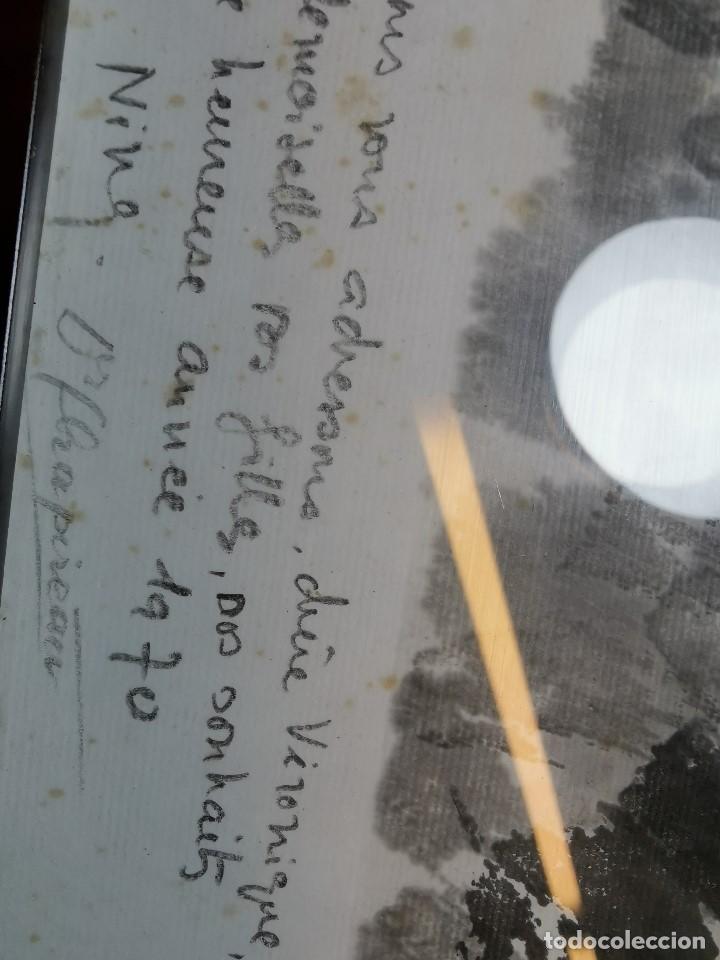 ous vous adressons, chère Véronique,
demoiselle, vos filles, nos souhaits
e heureuse année 1970
Nina.
todocoleccion